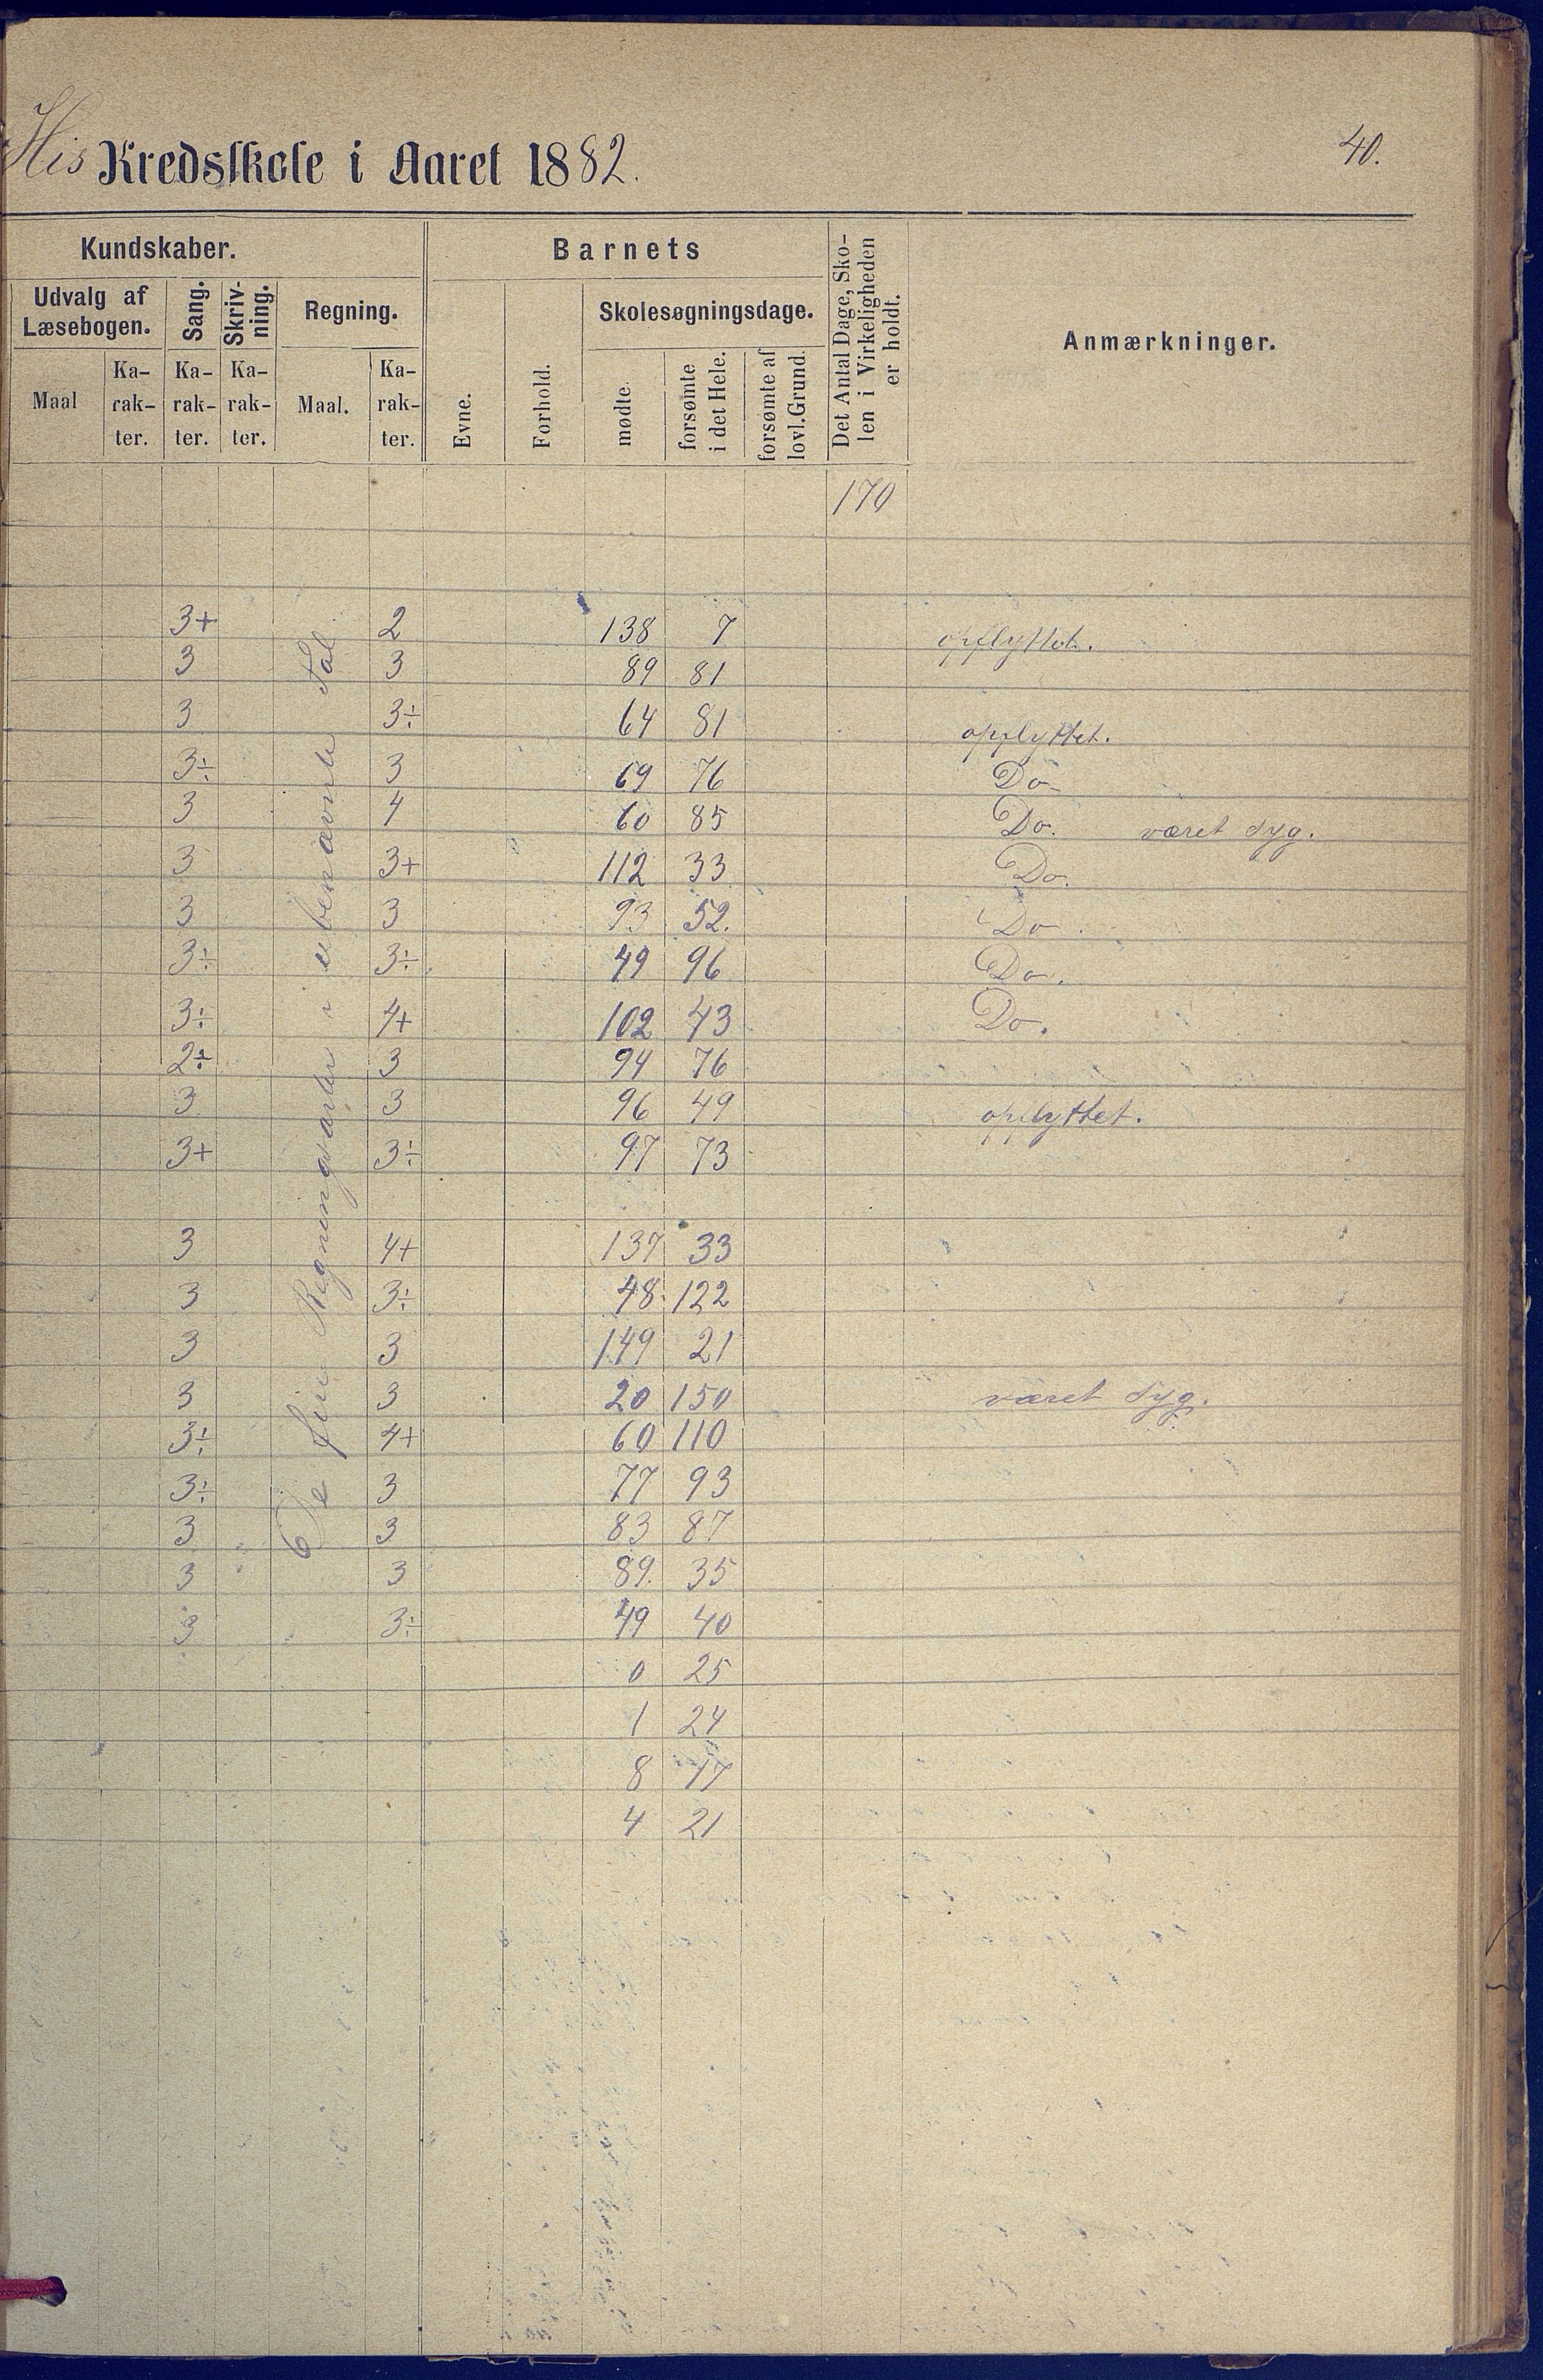 His Kredsskole i Aaret 1882.
40.
Kundskaber.
Barnets
Det Antal Dage, Sko-
len i Virkeligheden
er holdt.
Anmærkninger.
Udvalg af
Læsebogen.
Sang.
Skriv-
ning.
Regning.
Skolesøgningsdage.
Maal
Ka-
rak-
ter.
Ka-
rak-
ter.
Ka-
rak-
ter.
Maal.
Ka-
rak-
ter.
Evne.
Forhold.
mødte.
forsømte
i det Hele.
forsømte af
lovl. Grund.
170
De fire Regningsarter i ubenævnte Tal
3+ 2 138 7 opflyttet.
3 3 89 81
3 3÷ 64 81 opflyttet.
3÷ 3 69 76 Do
3 4 60 85 Do. været syg.
3 3+ 112 33 Do.
3 3 93 52. Do.
3÷ 3÷ 49 96 Do.
3÷ 4+ 102 43 Do.
2÷ 3 94 76
3 3 96 49 opflyttet.
3+ 3÷ 97 73
3 4+ 137 33
3 3÷ 48 122
3 3 149 21
3 3 20 150 været syg.
3÷ 4+ 60 110
3÷ 3 77 93
3 3 83 87
3 3 89. 35
3 3÷ 49 40
0 25
1 24
8 17
4 21